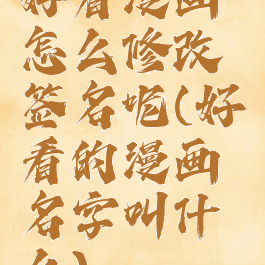 好看漫画
怎么修改
签名呢(好
看的漫画
名字叫什
么)